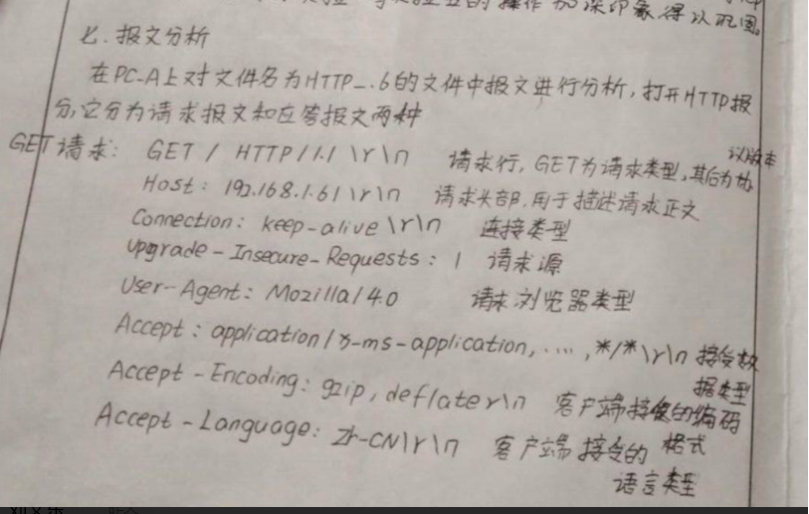 的操作加深印象得以巩固。
七.报文分析
在PC-A上对文件名为HTTP_.6的文件中报文进行分析,打开HTTP报
分,它分为请求报文和应答报文两种
GET请求: GET / HTTP/1.1 \r\n 请求行,GET为请求类型,其后为协
议版本
Host: 192.168.1.61\r\n 请求头部,用于描述请求正文
Connection: keep-alive\r\n 连接类型
Upgrade-Insecure-Requests: 1 请求源
User-Agent: Mozilla/4.0 请求浏览器类型
Accept: application/x-ms-application, ...., */*\r\n 接受数
据类型
Accept-Encoding: gzip, deflate\r\n 客户端接受的编码
格式
Accept-Language: zh-CN\r\n 客户端接受的
语言类型